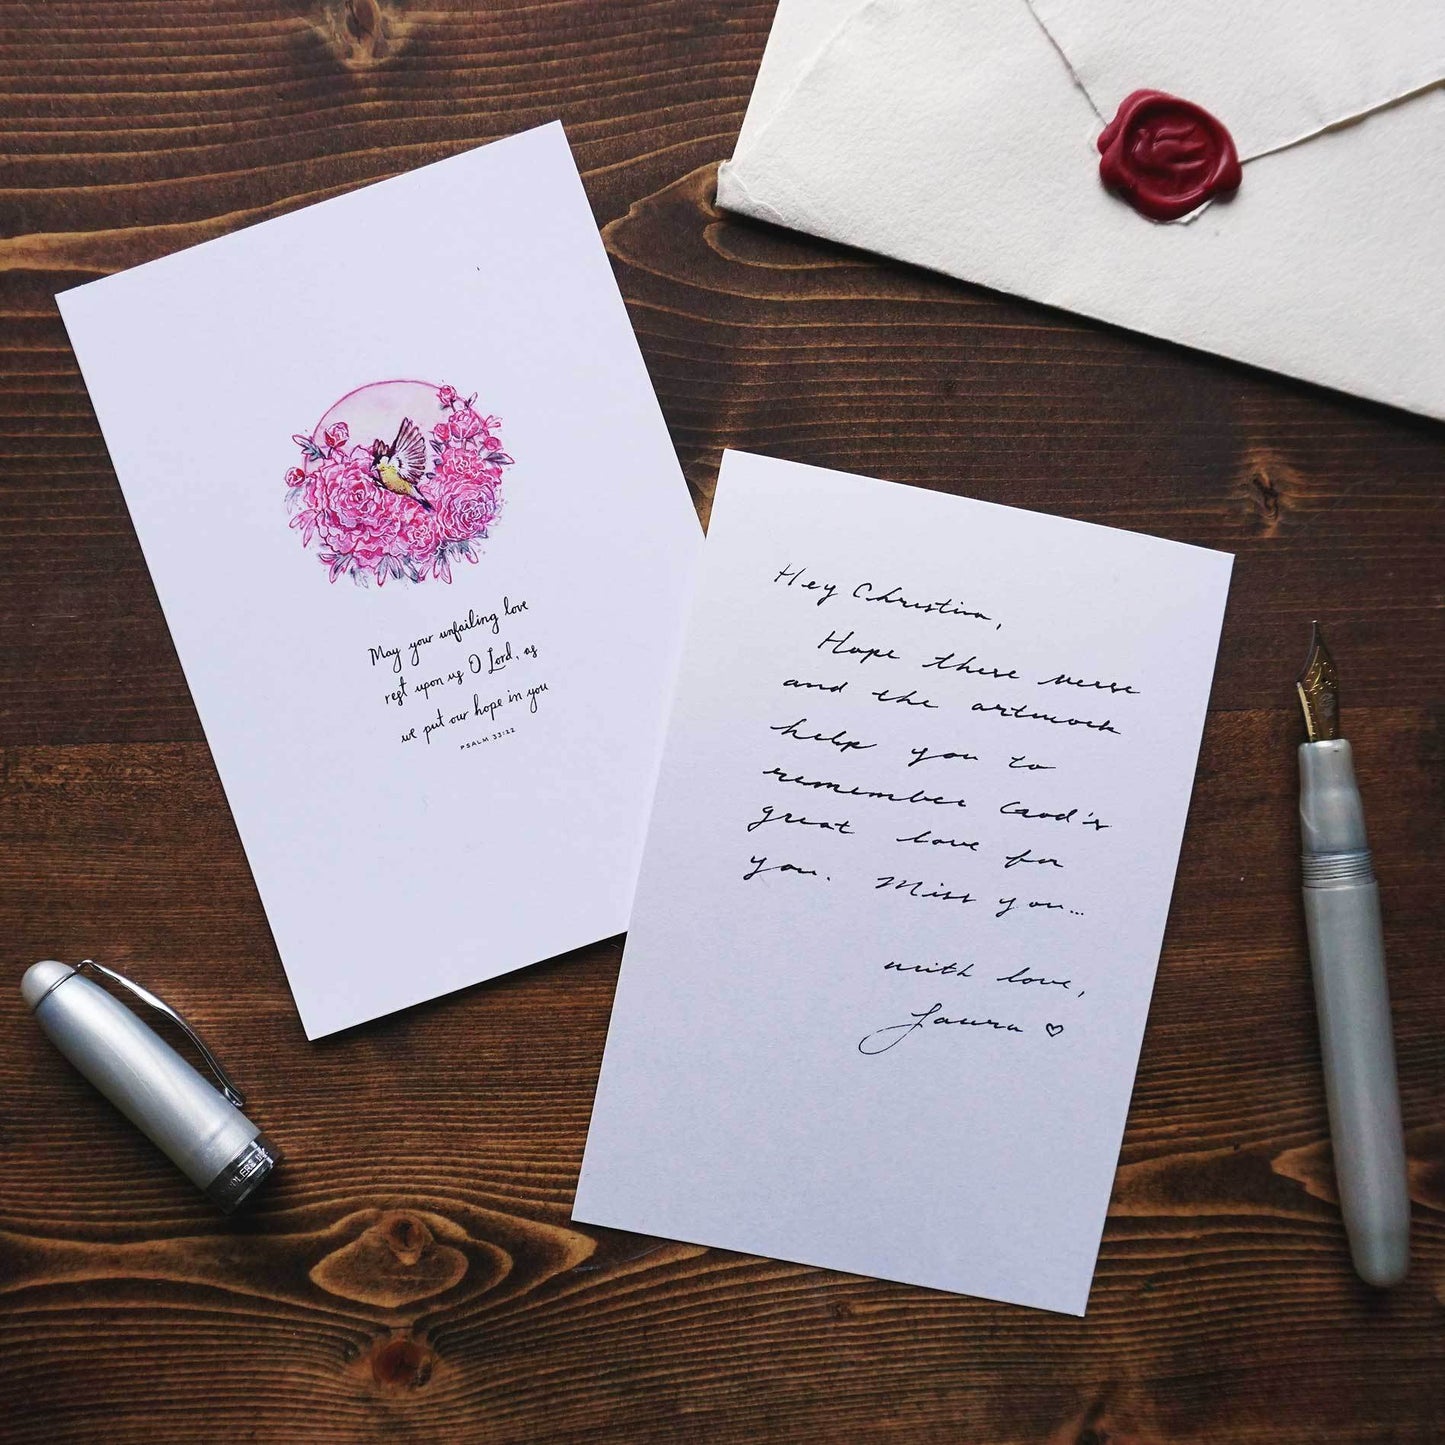 May your unfailing love
rest upon us O Lord, as
we put our hope in you
PSALM 33:22
Hey Christina,
Hope these verse
and the artwork
help you to
remember God's
great love for
you. Miss you...
with love,
Laura ♡